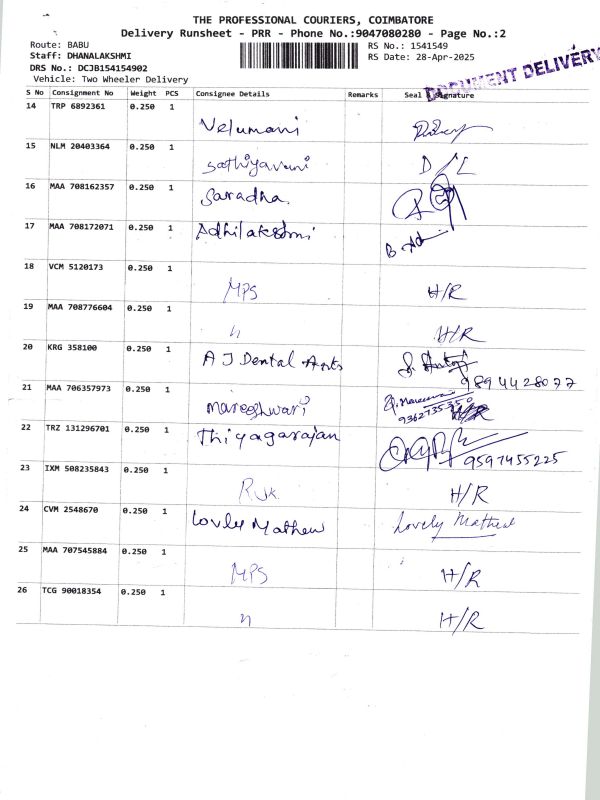 THE PROFESSIONAL COURIERS, COIMBATORE
Delivery Runsheet - PRR - Phone No.:9047080280 - Page No.:2
Route: BABU RS No.: 1541549
Staff: DHANALAKSHMI RS Date: 28-Apr-2025
DRS No.: DCJB154154902
Vehicle: Two Wheeler Delivery
DOCUMENT DELIVERY
S No Consignment No Weight PCS Consignee Details Remarks Seal & Signature
14 TRP 6892361 0.250 1 Velumani
15 NLM 20403364 0.250 1 Sathiyavani D/L
16 MAA 708162357 0.250 1 Saradha.
17 MAA 708172071 0.250 1 Adhilakshmi
18 VCM 5120173 0.250 1 MPS H/R
19 MAA 708776604 0.250 1 " H/R
20 KRG 358100 0.250 1 A J Dental Arts
9894428077
21 MAA 706357973 0.250 1 mareeshwari
9362735350
22 TRZ 131296701 0.250 1 Thiyagarajan
9597455225
23 IXM 508235843 0.250 1 H/R
24 CVM 2548670 0.250 1 Lovely Mathew Lovely Mathew
25 MAA 707545884 0.250 1 MPS H/R
26 TCG 90018354 0.250 1 " H/R